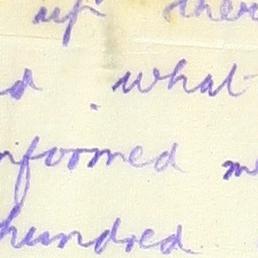 up ther
d what
nformed m
hundred